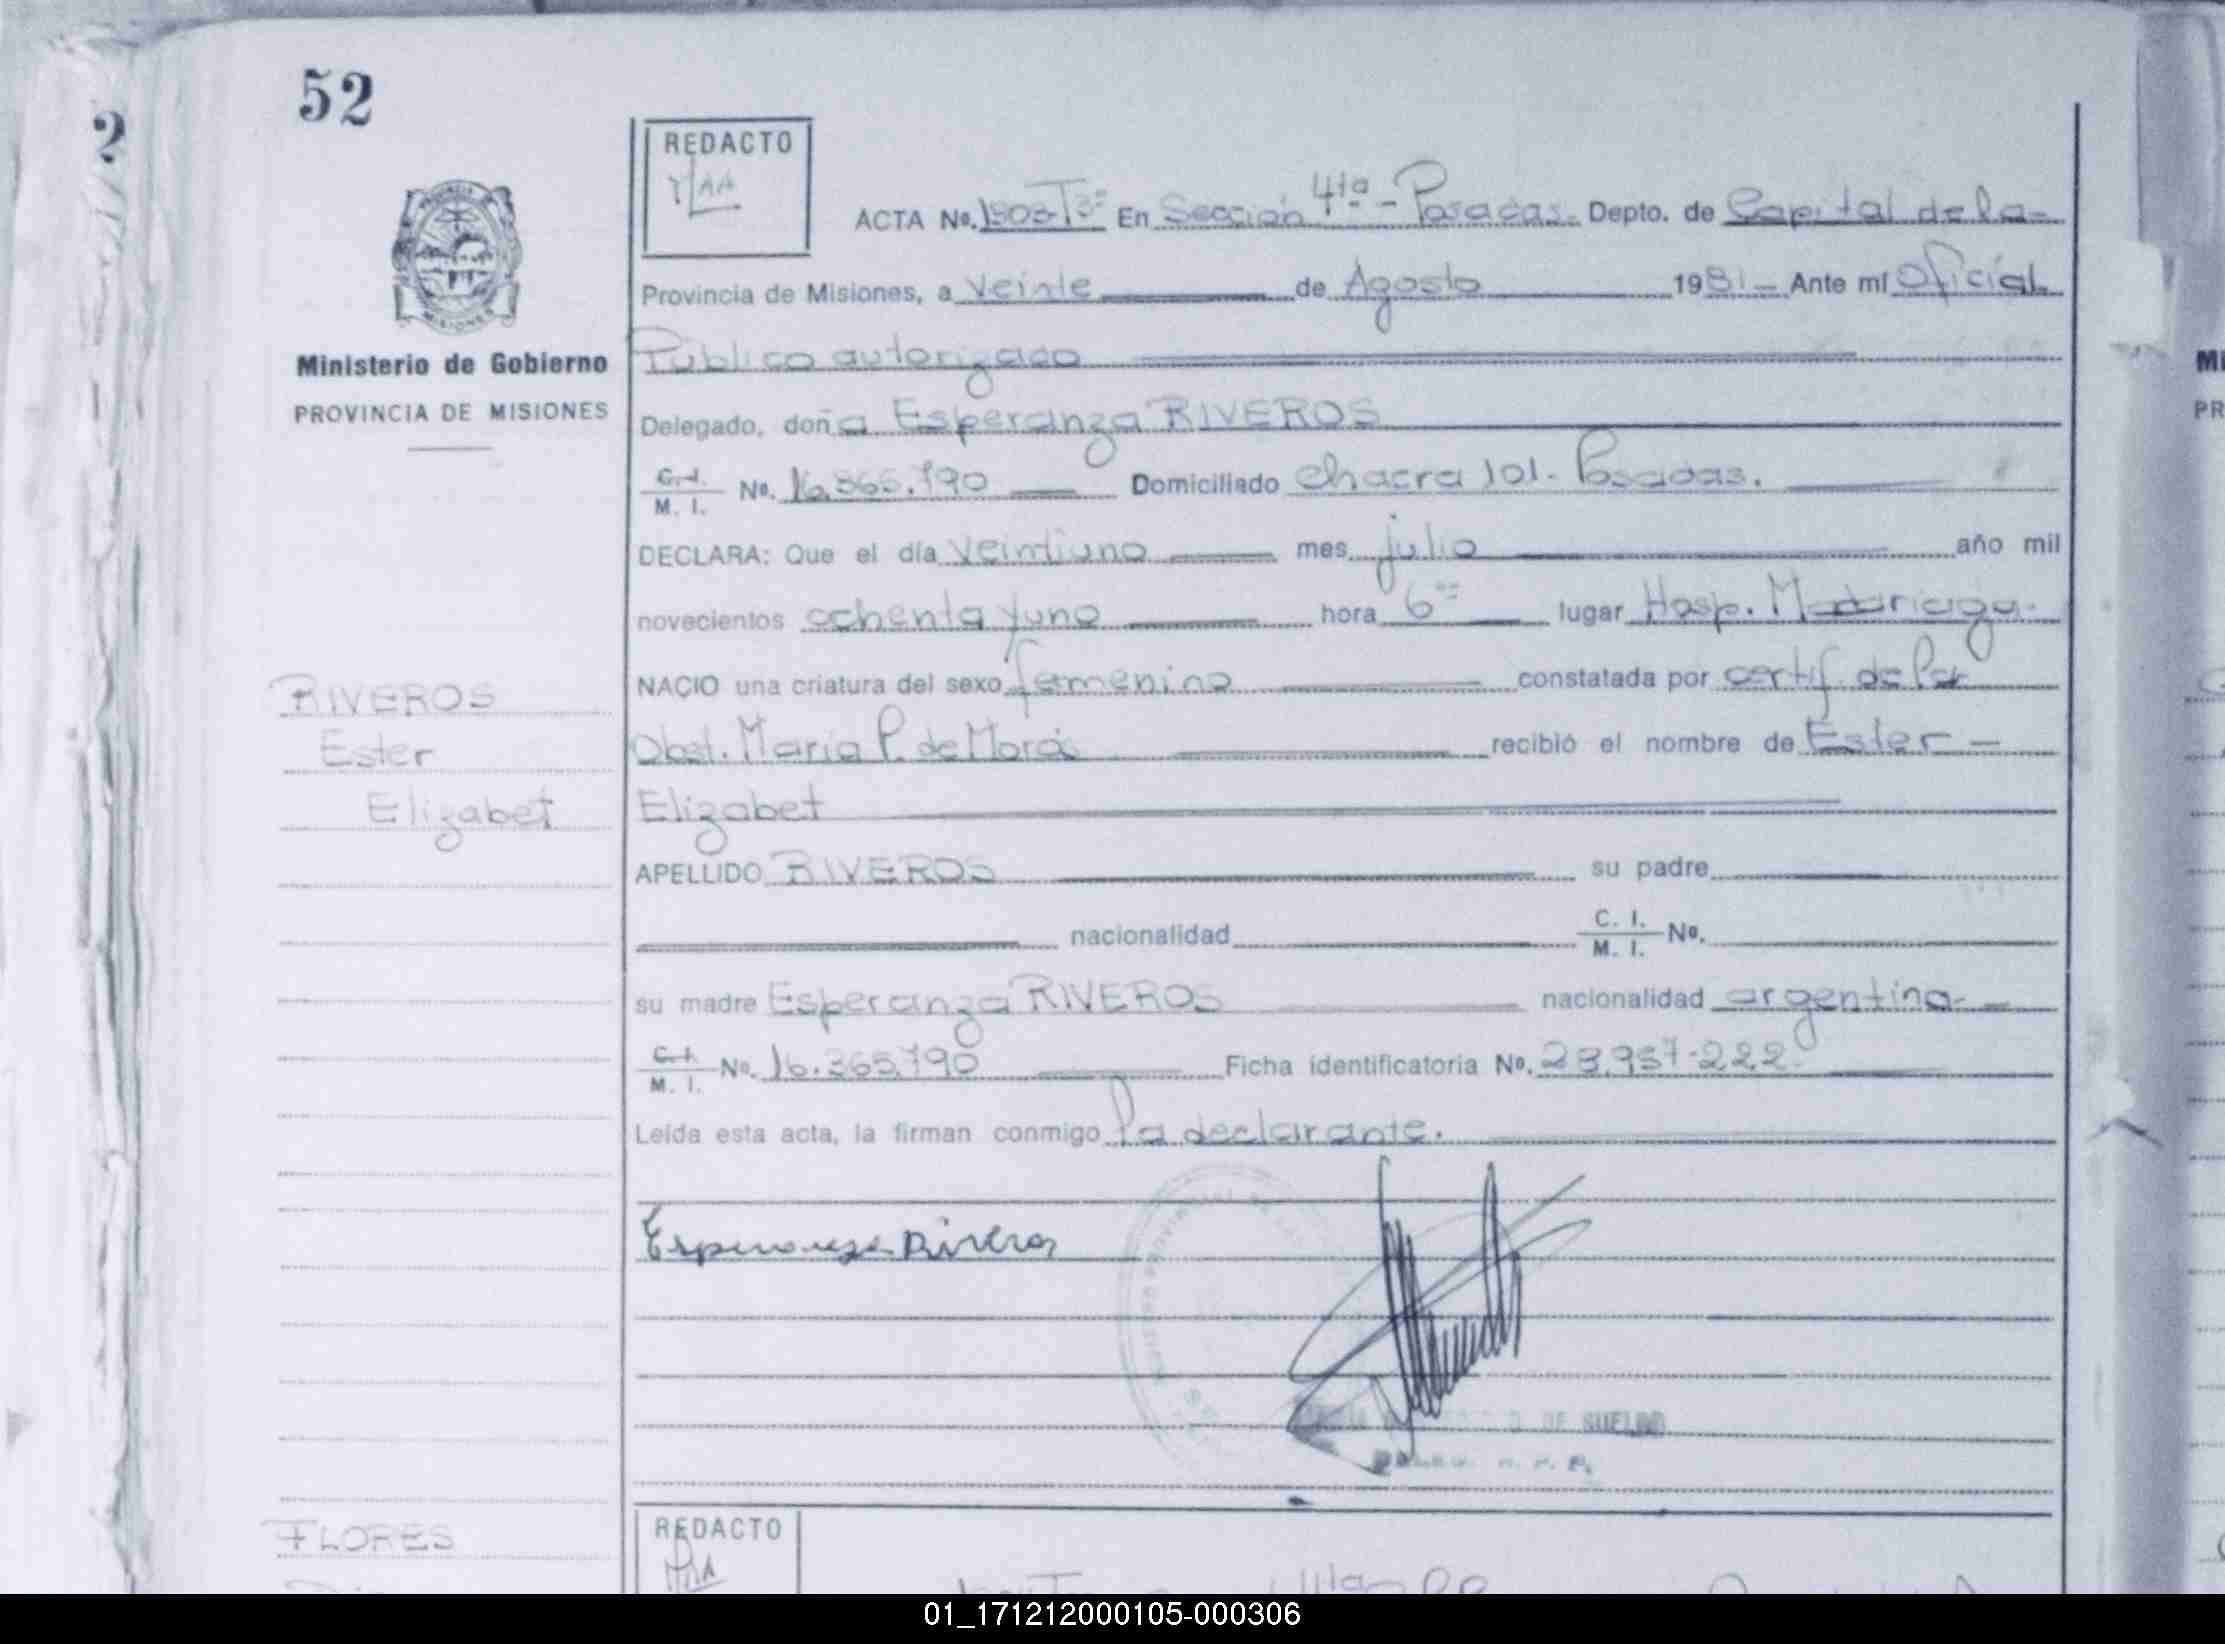 52
2
REDACTO
ACTA No. 1503-T3º En Sección 4ta - Posadas. Depto. de Capital de la-
Provincia de Misiones, a veinte de Agosto 1981- Ante mí Oficial
Ministerio de Gobierno
PROVINCIA DE MISIONES
Público autorizado
Delegado, doña Esperanza RIVEROS
C. I. M. I. No. 16.365.790 Domiciliado Chacra 101- Posadas.
DECLARA: Que el día veintiuno mes julio año mil
novecientos ochenta y uno hora 6 lugar Hosp. Madariaga.
RIVEROS
Ester
Elizabet
NACIO una criatura del sexo femenino constatada por certif. de la
Obst. María P. de Morás recibió el nombre de Ester -
Elizabet
APELLIDO RIVEROS su padre
nacionalidad C. I. M. I. No.
su madre Esperanza RIVEROS nacionalidad argentina-
C. I. M. I. No. 16.365.790 Ficha identificatoria No. 28.937.222
Leída esta acta, la firman conmigo la declarante.
Esperanza Riveros
DE SUELDO
FLORES
REDACTO
01_171212000105-000306